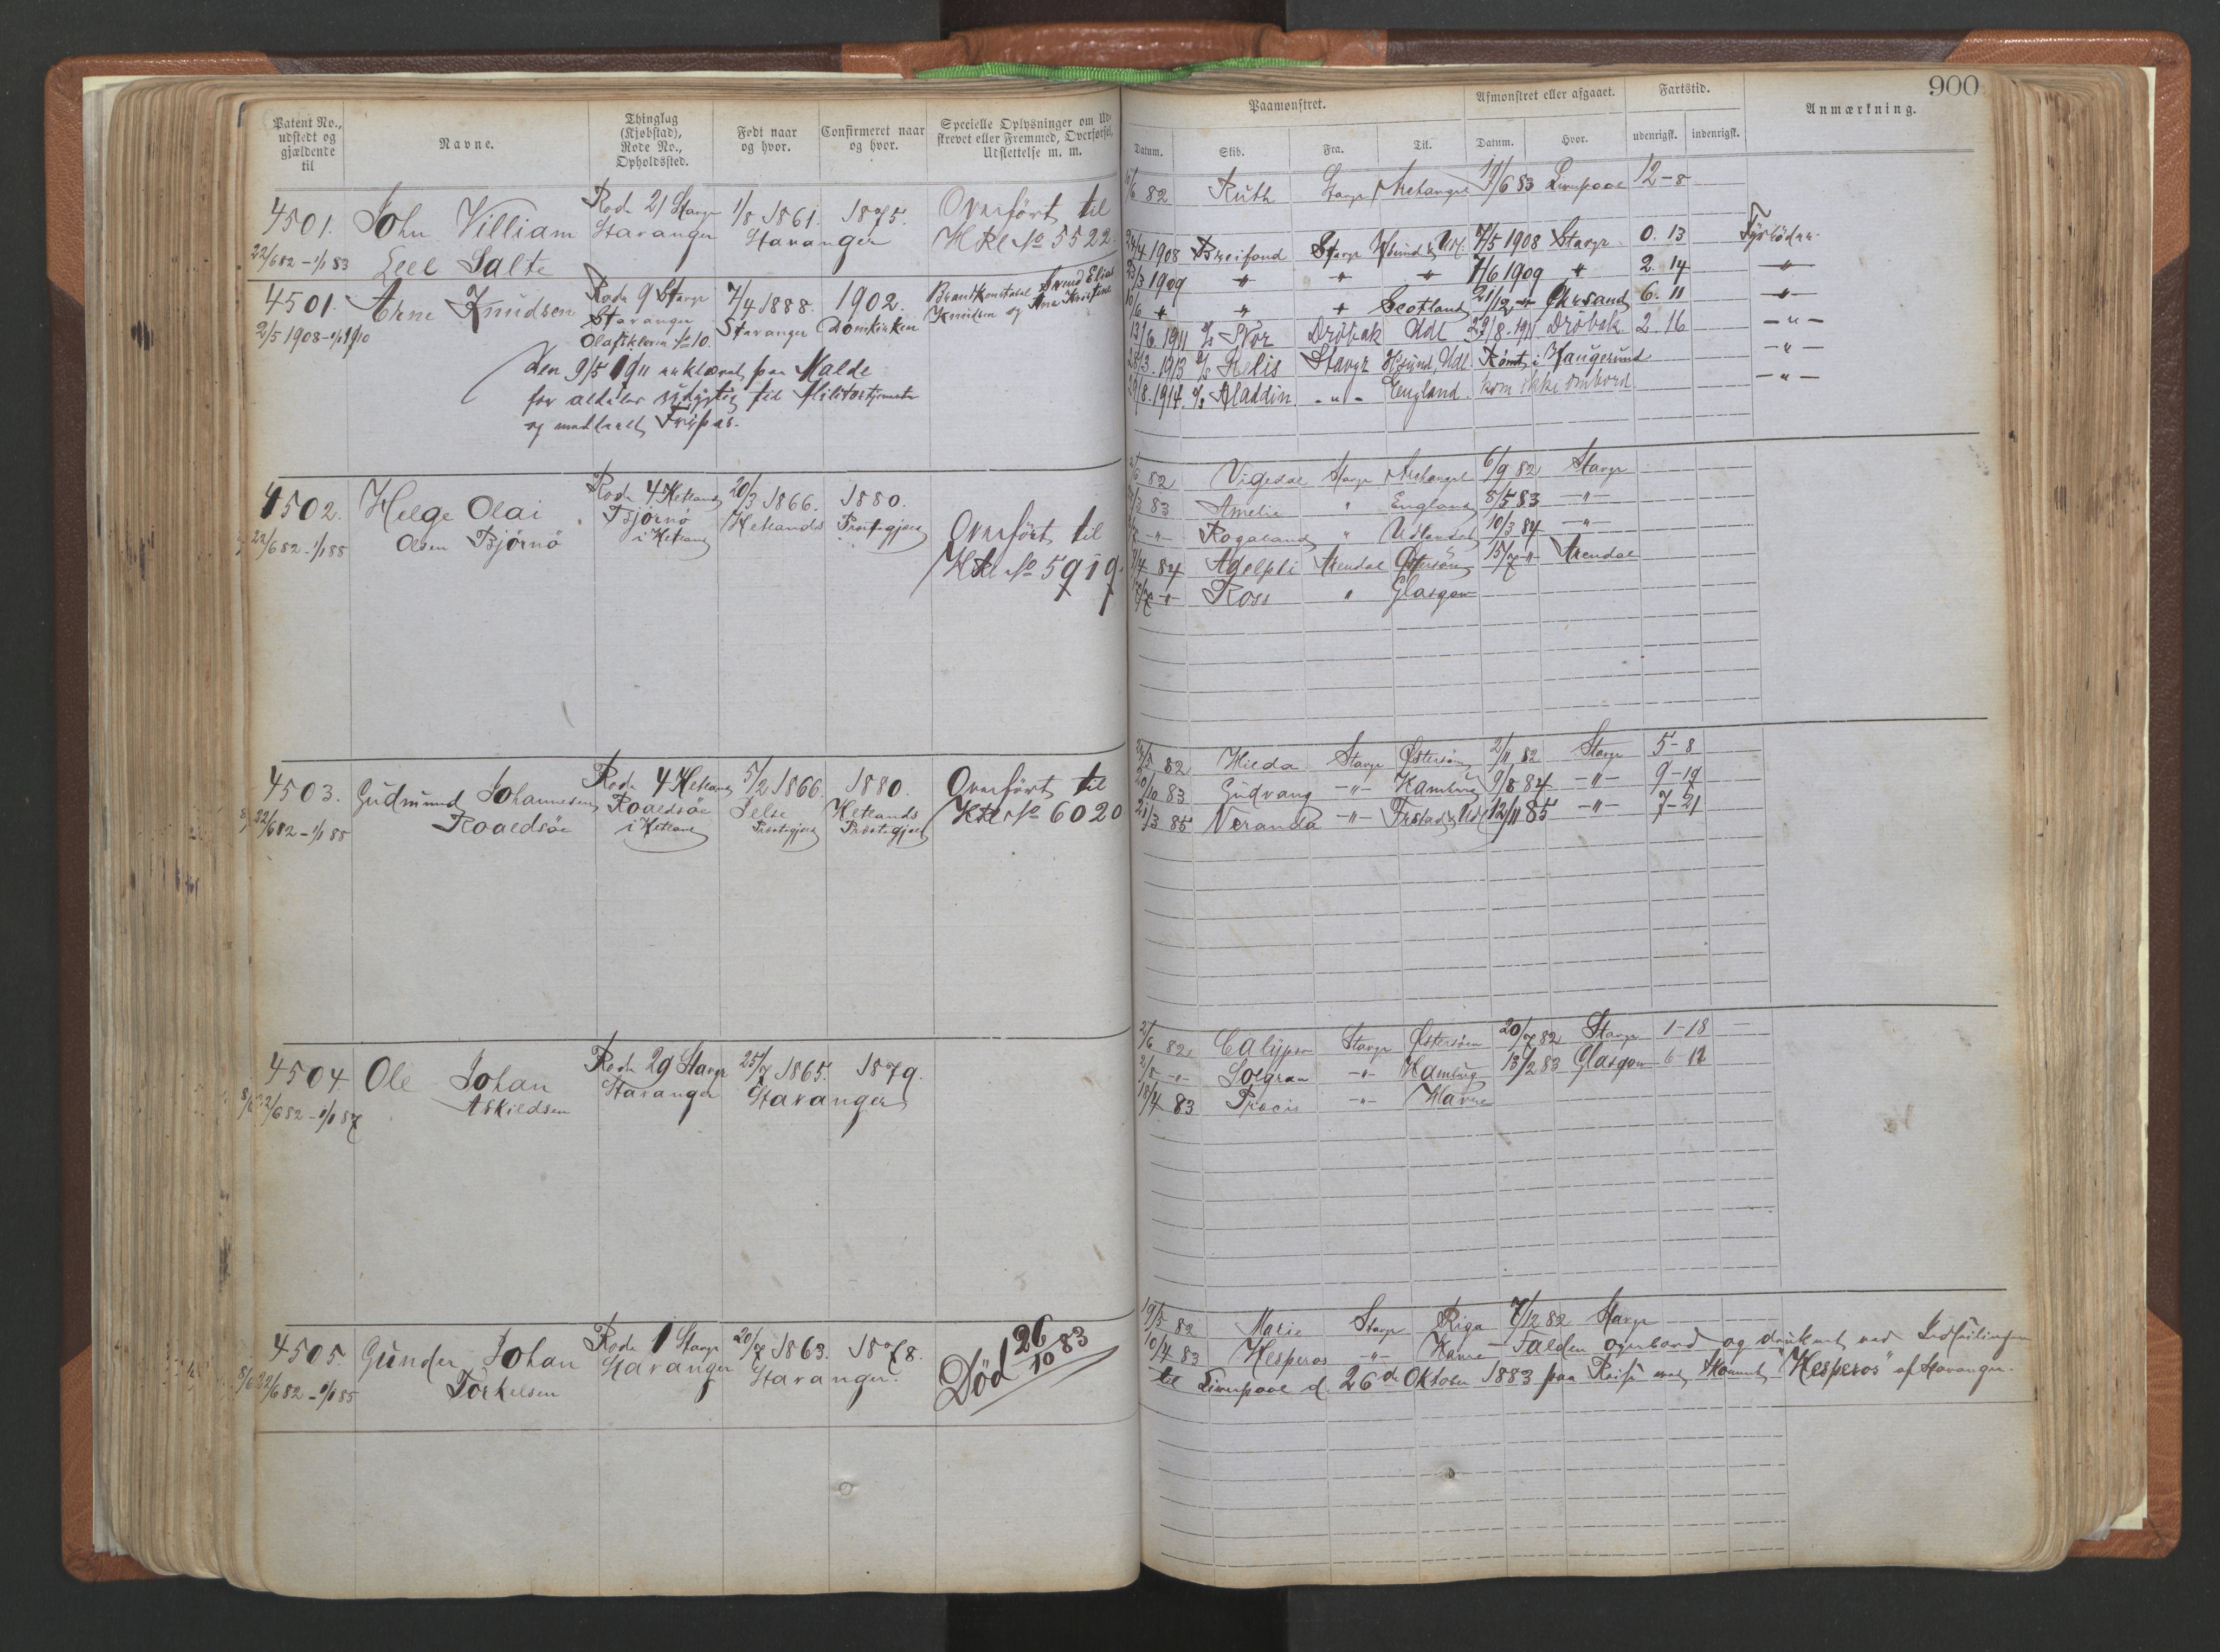 900
Patent No.,
udstedt og
gjældende
til
Navne.
Thinglag
(Kjøbstad),
Rode No.,
Opholdssted.
Født naar
og hvor.
Confirmeret naar
og hvor.
Specielle Oplysninger om Ud-
skrevet eller Fremmed, Overførsel,
Udslettelse m. m.
Paamønstret.
Datum.
Skib.
Fra.
Til.
Afmønstret eller afgaaet.
Datum.
Hvor.
Fartstid.
udenrigsk.
indenrigsk.
Anmærkning.
4501. John Villiam
Leel Salte
22/6 82 - 1/1 83
Rode 21 Stavgr
Stavanger
1/8 1861.
Stavanger
1875.
Overført til
HRl No 5522.
6 82 Ruth Stavgr Archangel 11/6 83 Liverpool 12-8
4501. Arne Knudsen
2/5 1908 - 1/1 1910
Rode 9 Stavgr
Stavanger
Olafskleven No 10.
7/4 1888.
Stavanger
1902.
Domkirken
Brandkonstabel Svend Elias
Knudsen og Ane Kristine
Den 9/5 1911 erklæret paa Malde
for aldeles udygtig til Militærtjeneste
og meddelt Fripas.
4 1908 Breifond Stavgr Hsund & Udl. 7/5 1908 Stavgr 0. 13 Fyrbøder
3 1909 " " " 7/6 1909 " 2. 14 "
10/6 " " " Scotland 21/12 " Ø Krsand 6. 11 "
13/6 1911 S/S Nor Drøbak Udl 29/8 1911 Drøbak 2. 16 - " -
28/3. 1913 S/S Helis Stavgr Hsund, Udl. Rømt i Haugesund - " -
29/8. 1914. S/S Aladdin - " - England. kom ikke ombord - " -
4502. Helge Olai
Olsen Bjørnø
22/6 82 - 1/1 85
Rode 4 Hetland
Bjørnø
i Hetland
20/3 1866.
Hetlands
1880.
Præstegjæld
Overført til
HRl No 5919.
6 82 Vigedal Stavgr Archangel 6/9 82 Stavgr
3 83 Amelie " England 8/5 83 - " -
- " - Rogaland " Udlandet 10/3 84 - " -
4 84 Adelphi Arendal Østersøen 15/7 " Arendal
7 - " - Ross " Glasgow
4503. Gudmund Johannesen
Roaldsøe
22/6 82 - 1/1 85
Rode 4 Hetland
Roaldsøe
i Hetland
5/2 1866.
Jelse
Præstegjæld
1880.
Hetlands
Præstegjæld
Overført til
HRl No 6020
24/5 82 Hilda Stavgr Østersøen 2/11 82 Stavgr 5-8
20/10 83 Gudvang - " - Hamburg 9/8 84 - " - 9-19
21/3 85 Veranda - " - Frstad & Udl 12/11 85 - " - 7-21
4504 Ole Johan
Askildsen
22/6 82 - 1/1 87
Rode 29 Stavgr
Stavanger
25/7 1865.
Stavanger
1879.
2/6 82 Calypso Stavgr Østersøen 20/7 82 Stavgr 1-18
2/8 - " - Solgran - " - Hamburg 13/2 83 Glasgow 6-12
18/4 83 Præcis - " - Havre
4505. Gunder Johan
Torkelsen
22/6 82 - 1/1 85
Rode 1 Stavgr
Stavanger
20/8 1863.
Stavanger.
1878.
Død 26/10 83
19/5 82 Marie Stavgr Riga 7/12 82 Stavgr
10/4 83 Hesperos - " - Havre - Falden overbord og druknet ved Indseilingen
til Liverpool d. 26de Oktober 1883 paa Reise med Skonnert "Hesperos" af Stavanger.